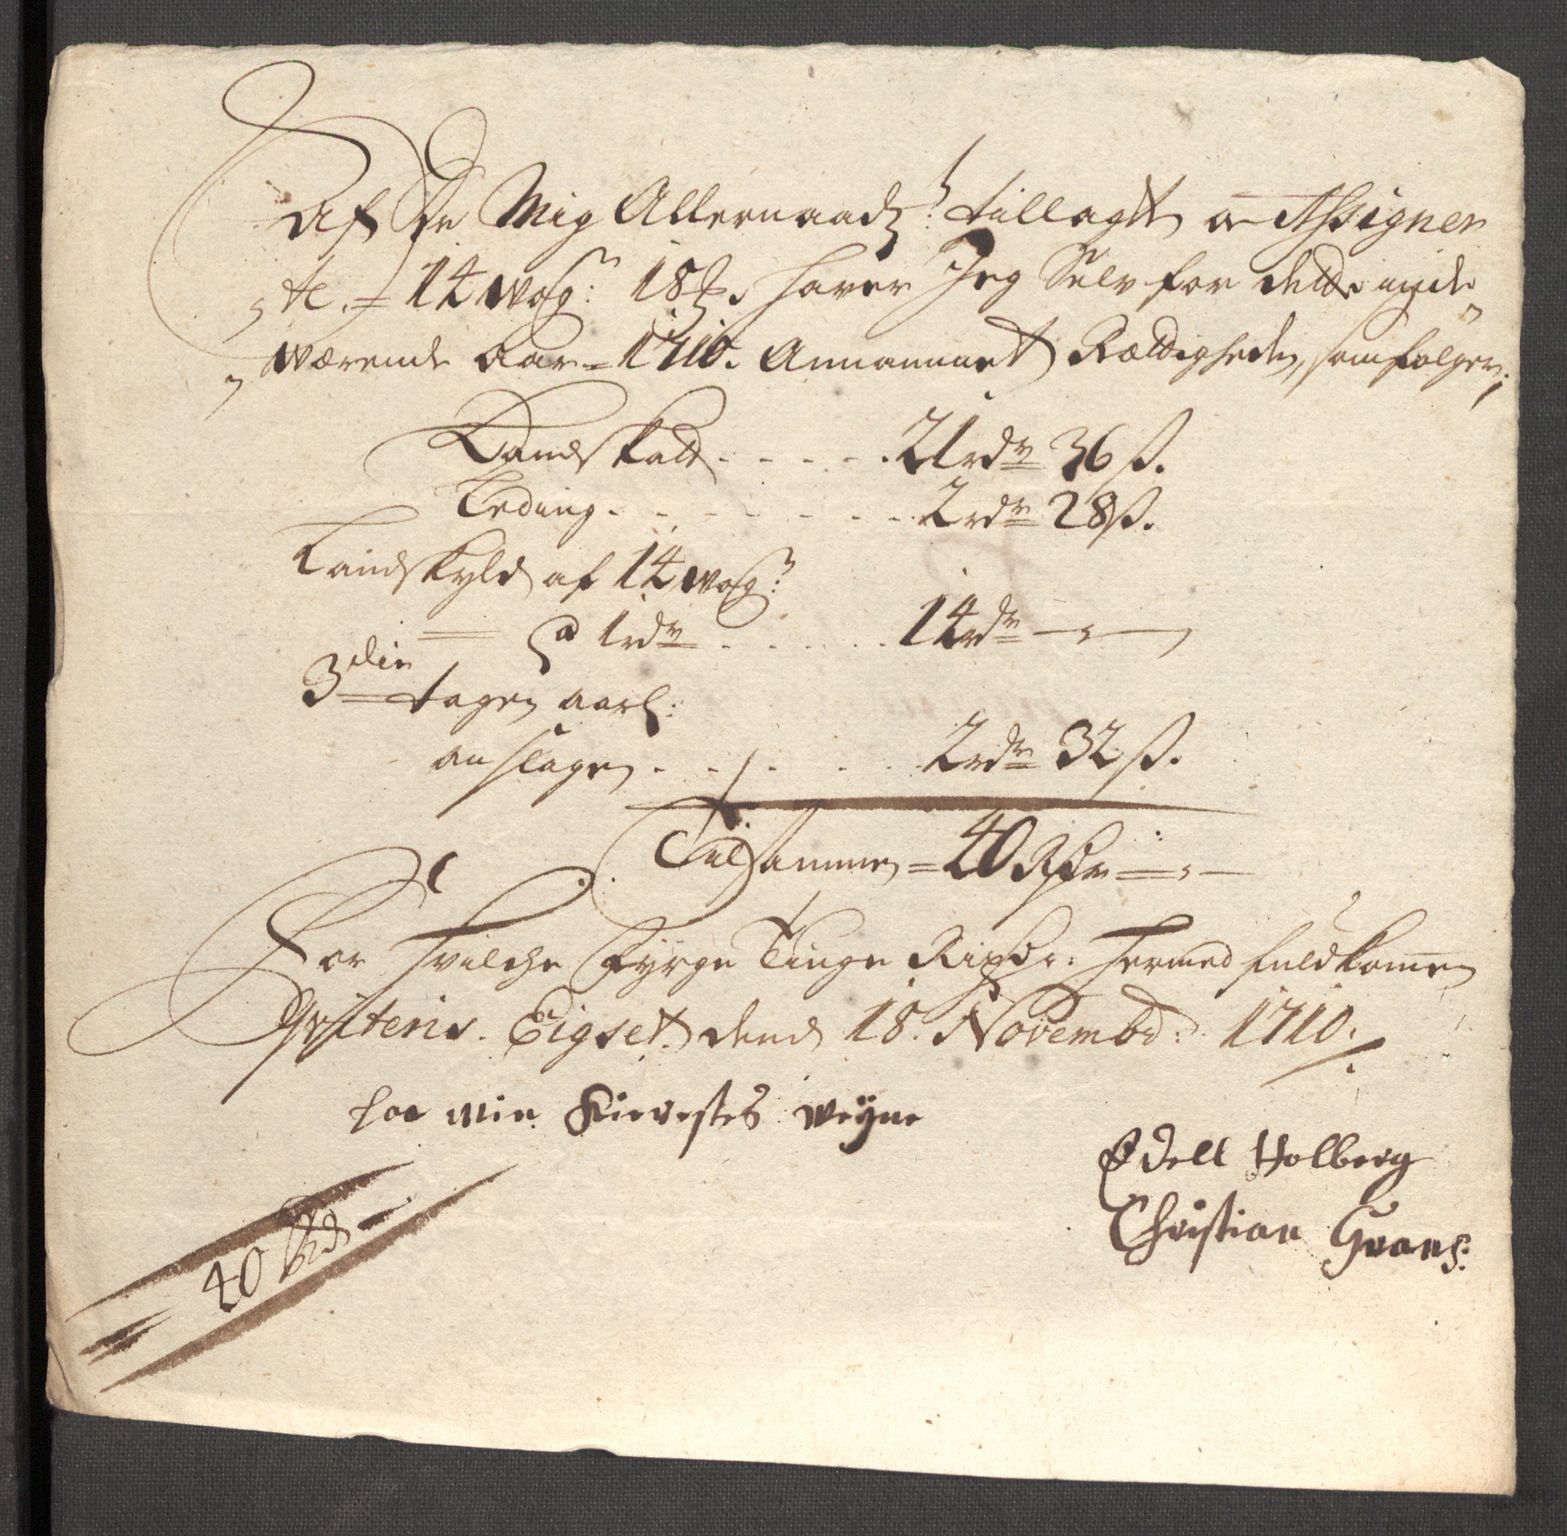 Af De Mig Allernaadst: tillagt og Assigner
te = 14 wog: 18 haver Jeg Selv for dette inde
værende Aar = 1710. Annammet Rættigheden, som følger;
Landskatt . . . . . 21 rdr 36 ß.
Leding . . . . . . . 2 rdr 28 ß.
Landskyld af 14 wog:
a 1 rdr . . . . . 14 rdr —
3die tagen aarl:
anslagen . . . . . 2 rdr 32 ß.
Tilsammen = 40 Rdr —
For hvilche Fyrge Tiuge Rixdr: hermed fuldkommen
Qviteris. Eigset dend 18. Novembr: 1710.
paa min Kierestes weyne
Edell Holberg
Christian Krans:
40 Rdr